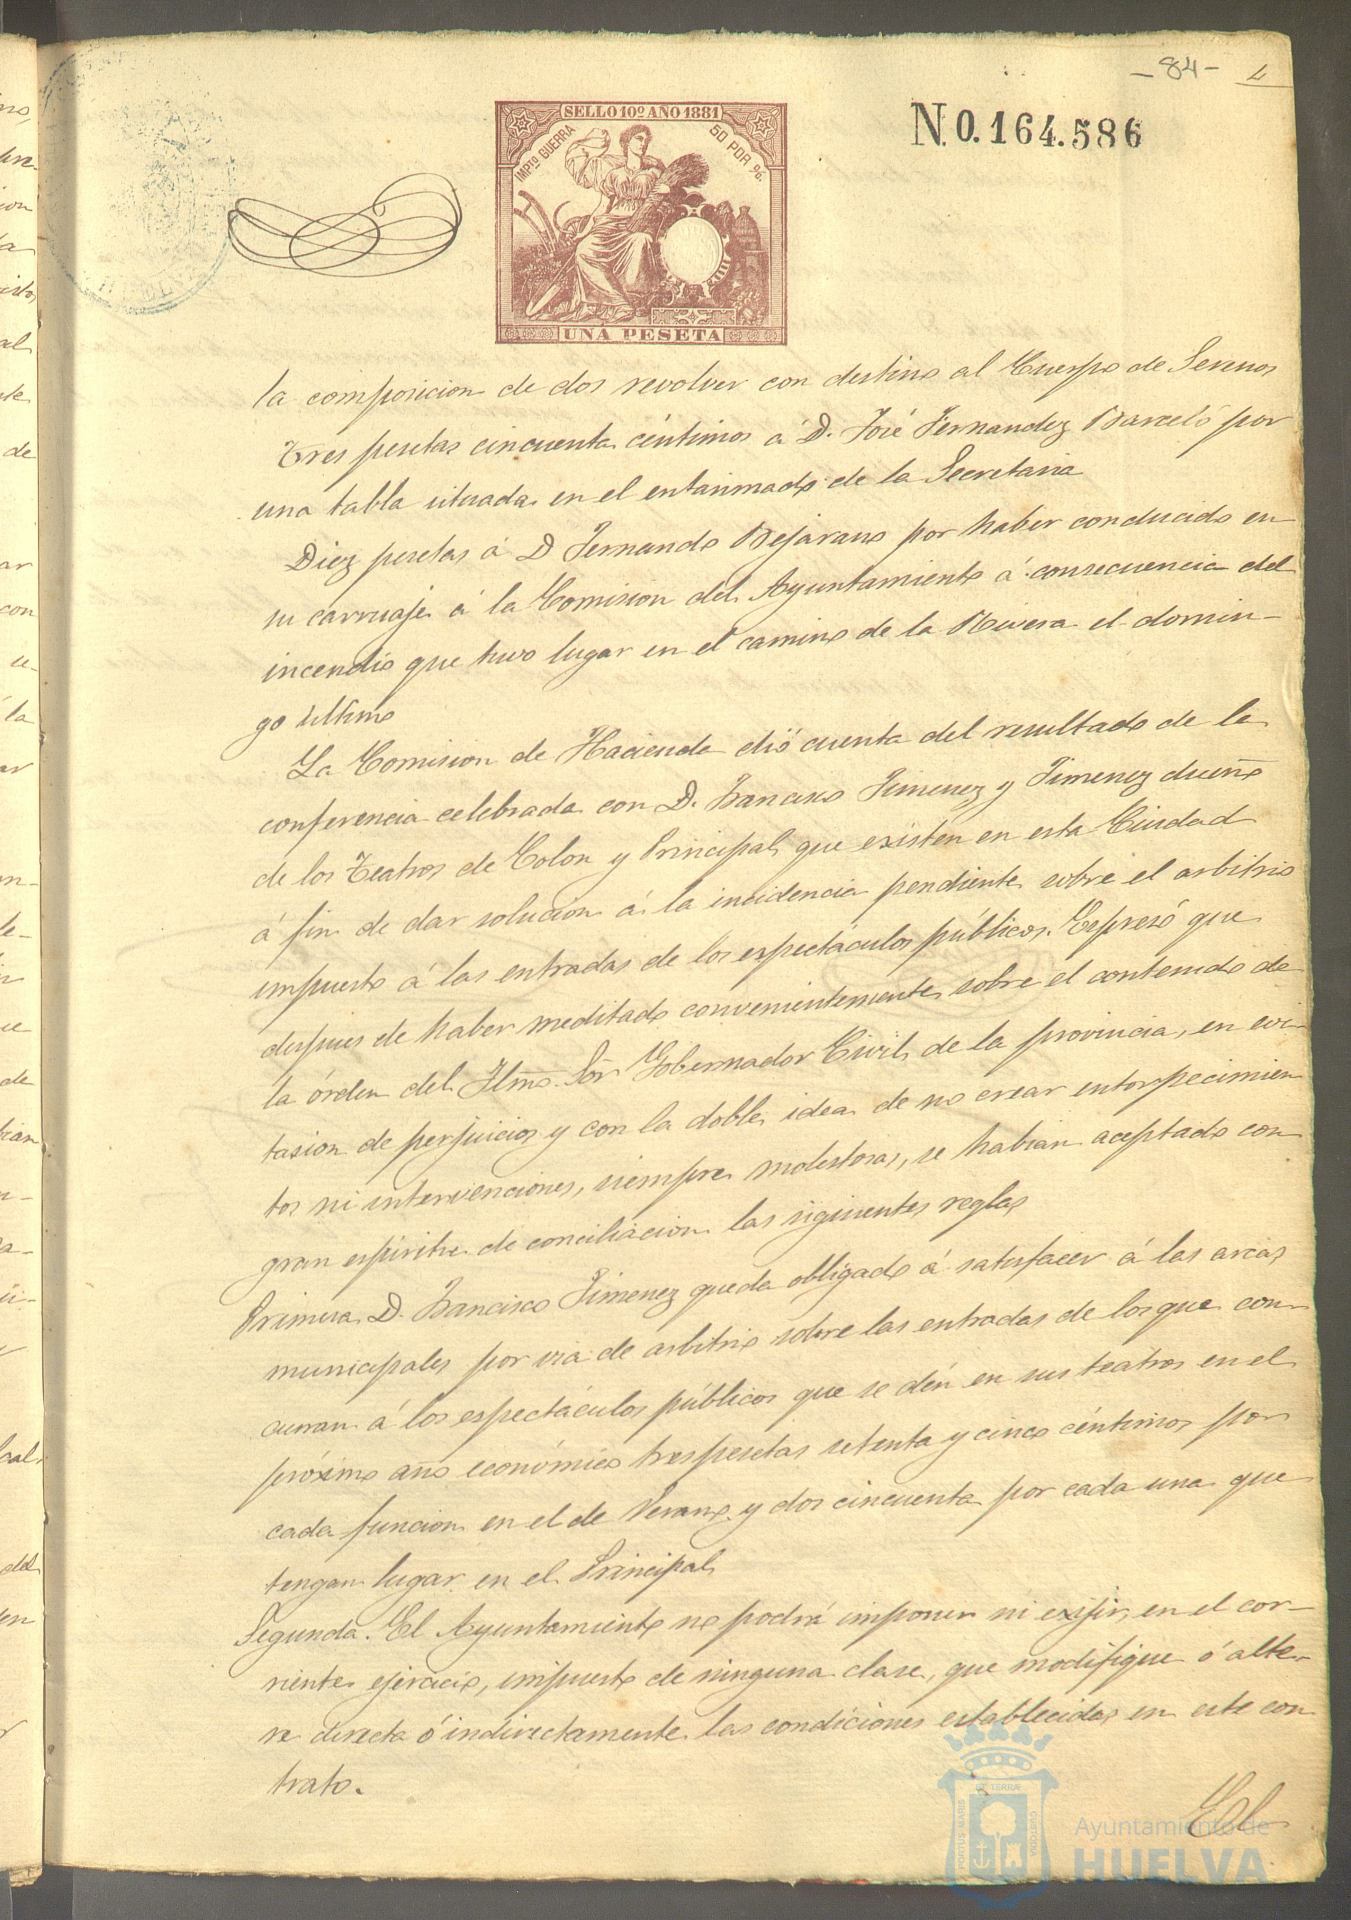 -84- 4
SELLO 10º AÑO 1881
IMPTO GUERRA 50 POR %.
N.0.164.586
UNA PESETA
la composicion de dos revolver con destino al Cuerpo de Serenos
Tres pesetas cincuenta céntimos á D. José Fernandez Barceló por
una tabla situada en el entarimado de la Secretaria
Diez pesetas á D Fernando Bejarano por haber conducido en
su carruaje á la Comision del Ayuntamiento á consecuencia del
incendio que tuvo lugar en el camino de la Rivera el domin-
go último
La Comision de Hacienda dió cuenta del resultado de la
conferencia celebrada con D. Francisco Jimenez y Jimenez dueño
de los Teatros de Colon y Principal, que existen en esta Ciudad
á fin de dar solucion á la incidencia pendiente sobre el arbitrio
impuesto á las entradas de los espectáculos públicos. Espresó que
despues de haber meditado convenientemente sobre el contenido de
la órden del Ilmo. Sór Gobernador Civil, de la provincia, en evi-
tasion de perjuicios y con la doble idea de no crear entorpecimien
tos ni intervenciones, siempre molestosas, se habian aceptado con
gran espíritu de conciliacion las siguientes reglas
Primera D. Francisco Jimenez queda obligado á satisfacer á las arcas
municipales por via de arbitrio sobre las entradas de los que con-
curran á los espectáculos públicos que se dén en sus teatros en el
próximo año económico tres pesetas setenta y cinco céntimos por
cada funcion en el de Verano y dos cincuenta por cada una que
tengan lugar en el Principal
Segunda. El Ayuntamiento no podrá imponer ni exijir, en el cor-
riente ejercicio, impuesto de ninguna clase, que modifique ó alte-
re directa ó indirectamente las condiciones establecidas en este con
trato.
El
PORTUS MARIS ET TERRÆ CUSTODIA
Ayuntamiento de
HUELVA